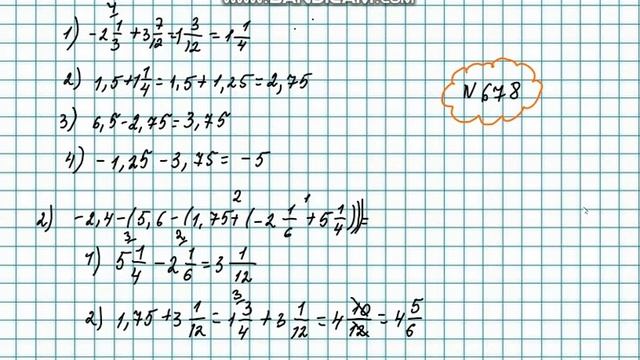 WWW.BANDICAM.COM
1) -2 1/3 + 3 7/12 = 1 3/12 = 1 1/4
4
2) 1,5 + 1 1/4 = 1,5 + 1,25 = 2,75
N 678
3) 6,5 - 2,75 = 3,75
4) - 1,25 - 3,75 = - 5
2 1
2) -2,4 - (5,6 - (1,75 + (-2 1/6 + 5 1/4))) =
3 2
1) 5 1/4 - 2 1/6 = 3 1/12
3
2) 1,75 + 3 1/12 = 1 3/4 + 3 1/12 = 4 10/12 = 4 5/6